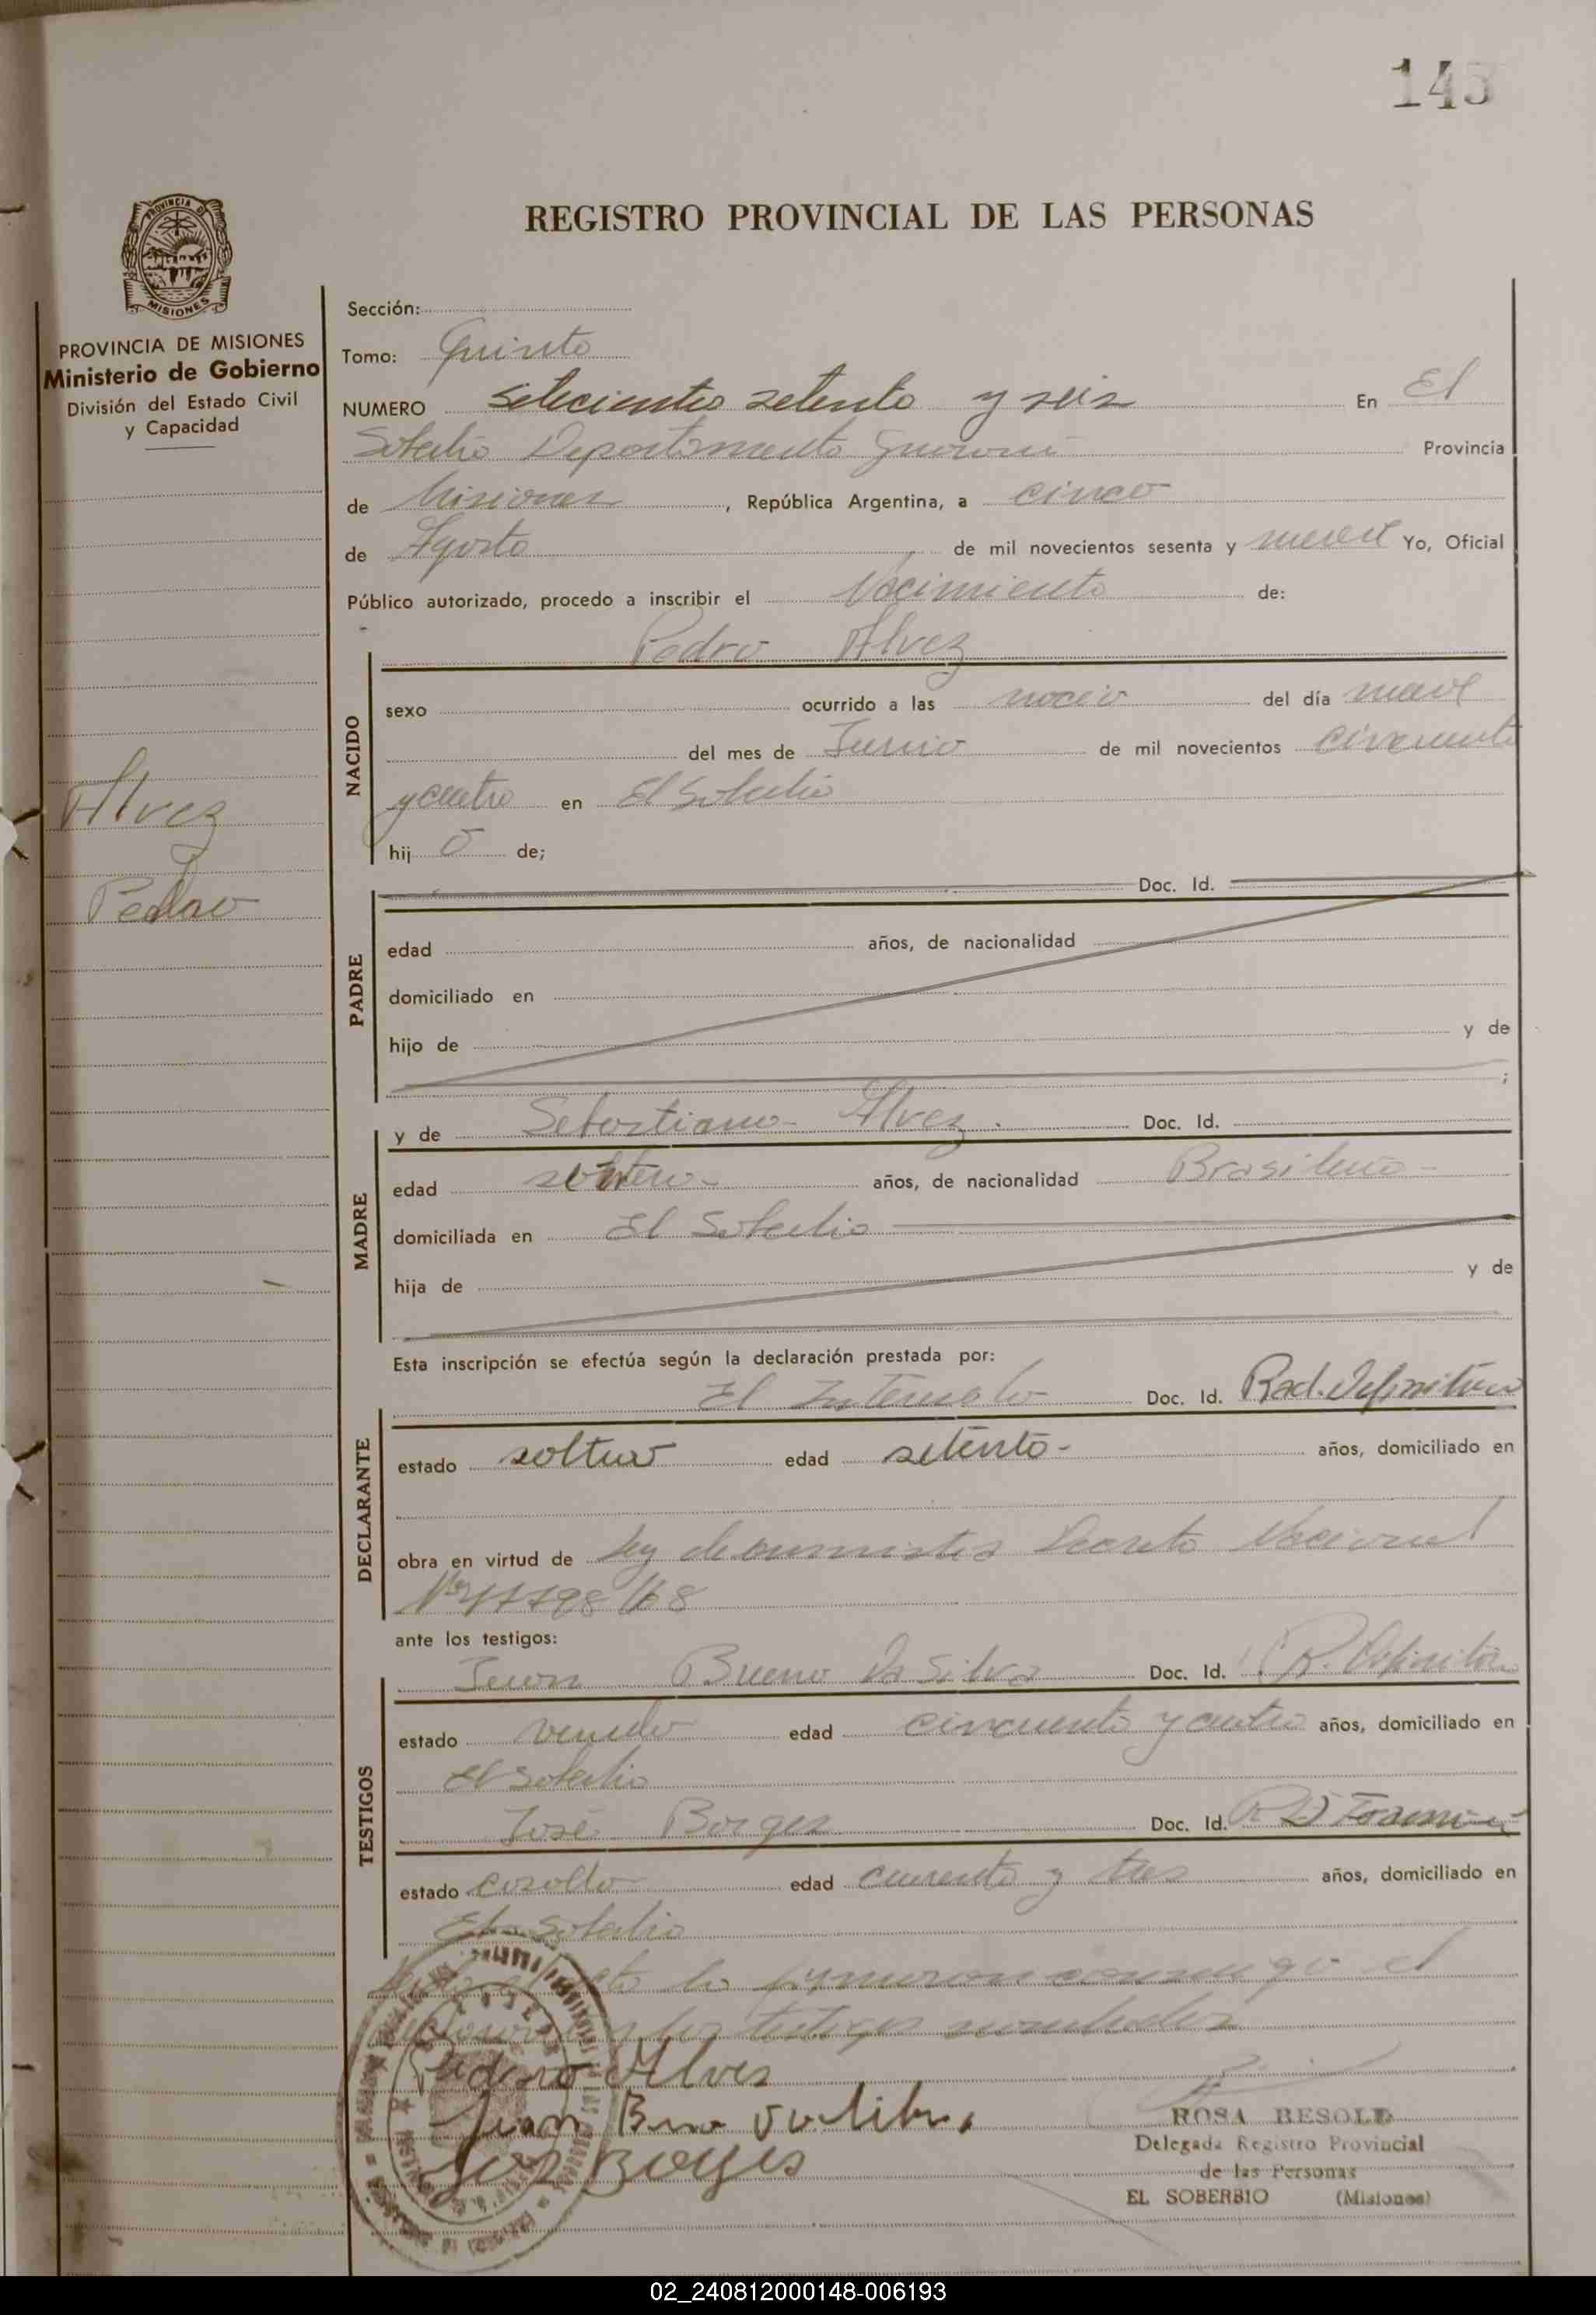 143
PROVINCIA DE
MISIONES
REGISTRO PROVINCIAL DE LAS PERSONAS
PROVINCIA DE MISIONES
Ministerio de Gobierno
División del Estado Civil
y Capacidad
Alvez
Pedro
Sección:
Tomo: Quinto
NUMERO Setecientos setenta y seis En El
Soberbio Departamento Guaraní Provincia
de Misiones, República Argentina, a cinco
de Agosto de mil novecientos sesenta y nueve Yo, Oficial
Público autorizado, procedo a inscribir el Nacimiento de:
Pedro Alvez
NACIDO
sexo ocurrido a las del día nueve
del mes de Junio de mil novecientos cincuenta
y cuatro en El Soberbio
hij o de;
PADRE
Doc. Id.
edad años, de nacionalidad
domiciliado en
hijo de y de
;
MADRE
y de Sebastiana Alvez. Doc. Id.
edad soltera años, de nacionalidad Brasileña
domiciliada en El Soberbio
hija de y de
Esta inscripción se efectúa según la declaración prestada por:
DECLARANTE
El Interesado Doc. Id. Rad. Definitiva
estado soltero edad setenta años, domiciliado en
obra en virtud de Ley de amnistia Decreto Nacional
Nº 17798/68
ante los testigos:
TESTIGOS
Juan Bueno Da Silva Doc. Id. R. Definitiva
estado viudo edad cincuenta y cuatro años, domiciliado en
El Soberbio
José Borges Doc. Id.
estado casado edad cuarenta y tres años, domiciliado en
El Soberbio
la firmaron conmigo el
los testigos nombrados
Pedro Alves
Juan
Jose Borges
ROSA RESOLE
Delegada Registro Provincial
de las Personas
EL SOBERBIO (Misiones)
02_240812000148-006193